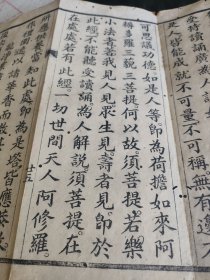 受持讀誦廣為人
是人皆能成就不可量不可稱無有
可思議功德如是人等即為荷擔如來阿
耨多羅三藐三菩提何以故須菩提若樂
小法者著我見人見眾生見壽者見即於
此經不能聽受讀誦為人解說須菩提在
在處處若有此經一切世間天人阿修羅
所應供養當知此處即為是塔皆應恭
禮圍繞以諸華香而散其